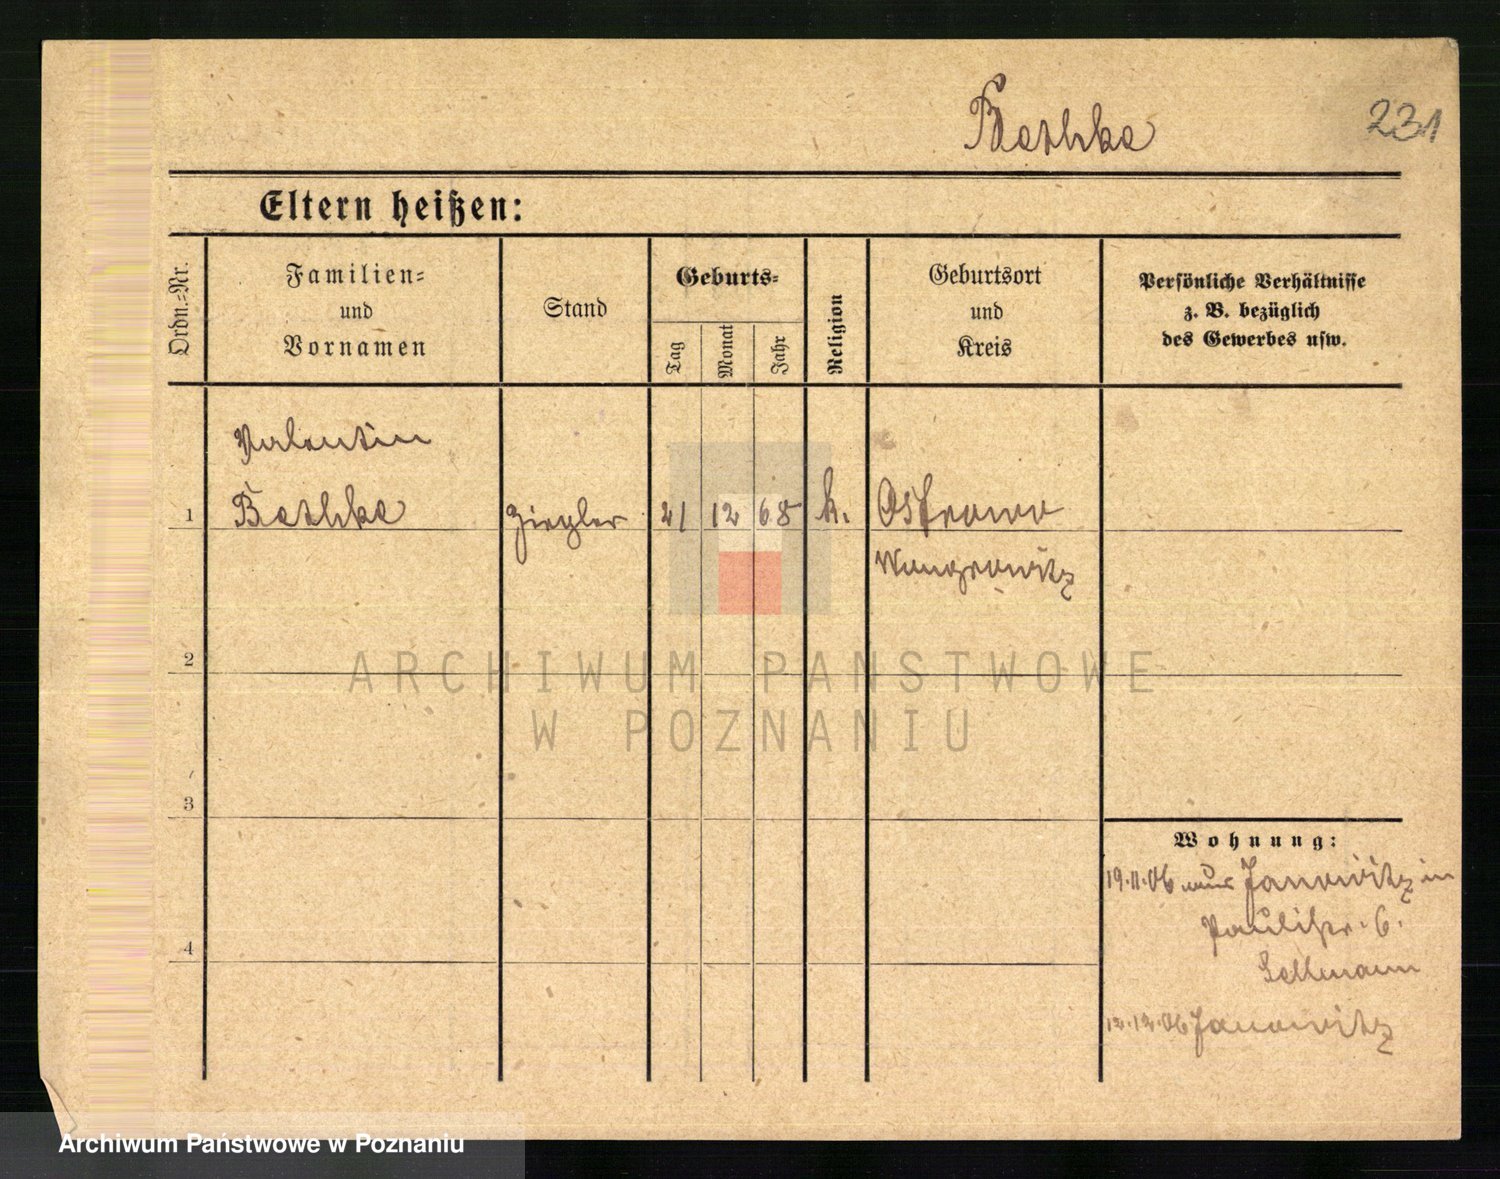 Bethke
231
Eltern heißen:
Ordn.=Nr.
Familien=
und
Vornamen
Stand
Geburts=
Tag
Monat
Jahr
Religion
Geburtsort
und
Kreis
Persönliche Verhältnisse
z. B. bezüglich
des Gewerbes usw.
Valentin
1 Bethke Ziegler 21 12 68 k. Ostrowo
Wongrowitz
2
ARCHIWUM PANSTWOWE
W POZNANIU
3
Wohnung:
19.11.06 aus Janowitz in
Paulistr. 6.
Sellmann
4
12.12.06 Janowitz
Archiwum Państwowe w Poznaniu